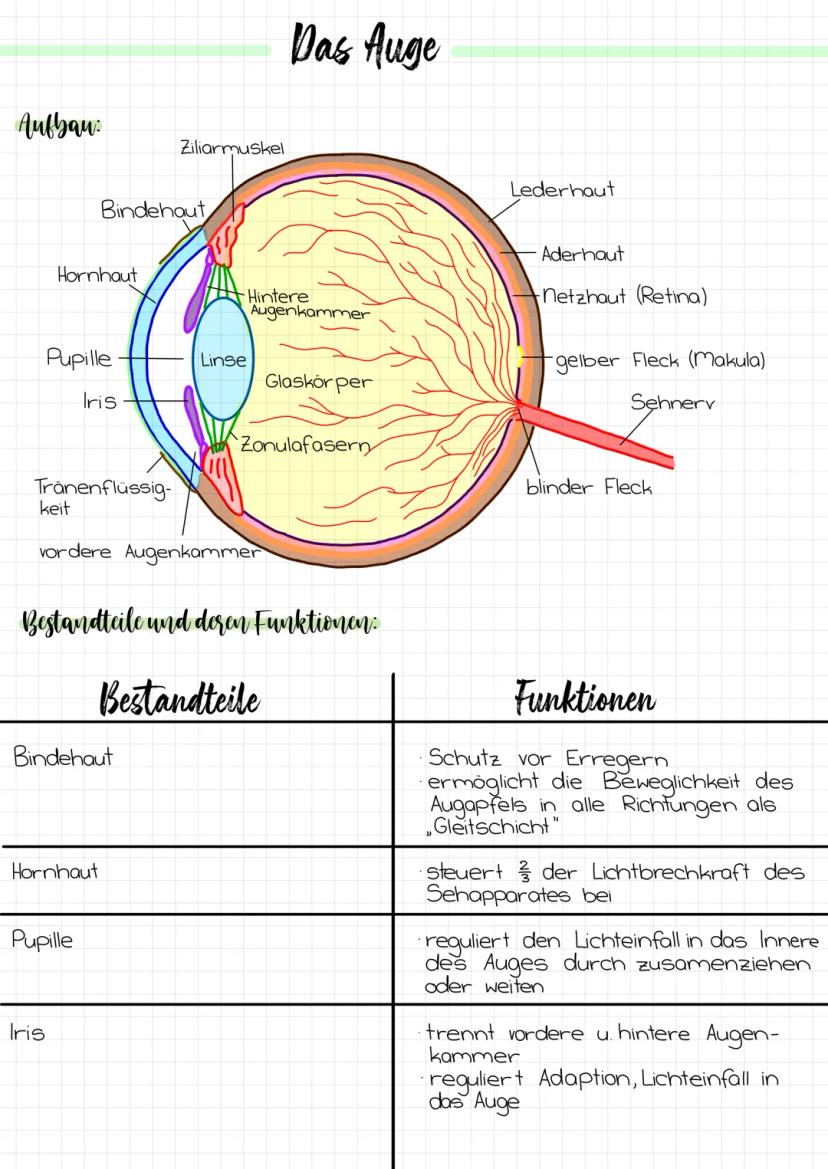 Das Auge
Aufbau:
Ziliarmuskel
Lederhaut
Bindehaut
Aderhaut
Hornhaut
Hintere
Augenkammer
Netzhaut (Retina)
Pupille
Linse
gelber Fleck (Makula)
Glaskörper
Iris
Sehnerv
Zonulafasern
Tränenflüssig-
keit
blinder Fleck
vordere Augenkammer
Bestandteile und deren Funktionen:
Bestandteile
Funktionen
Bindehaut
· Schutz vor Erregern
· ermöglicht die Beweglichkeit des
Augapfels in alle Richtungen als
„Gleitschicht"
Hornhaut
· steuert 2/3 der Lichtbrechkraft des
Sehapparates bei
Pupille
· reguliert den Lichteinfall in das Innere
des Auges durch zusamenziehen
oder weiten
Iris
· trennt vordere u. hintere Augen-
kammer
· reguliert Adaption, Lichteinfall in
das Auge